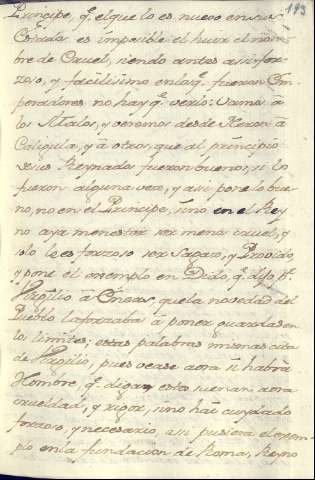 193
Principe, q.e el que lo es nuevo en sus
Estados es imposible el huir el nom-
bre de Cruel, siendo antes assi for-
zoso, y facilissimo en los q.e fueron Em-
peradores no hay q.e verlo: vamos a
los Malos, y veremos desde Neron â
Caligula, y â otros, que al principio
de sus Reynados fueron buenos, si lo
fueron alguna vez, y assi pone lo bue-
no, no en el Principe, sino en el Rey-
no aya menester ser menos cruel, y
solo le es forzoso ser sagaz, y Provido,
y pone el exemplo en Dido, q.e dijo
Virgilio â Eneas, que la novedad del
Pueblo la forzaba â poner guardas en
los limites; estas palabras mismas cita
de Virgilio, pues vease aora si habrà
Hombre, q.e diga estas suenan aora
crueldad, y rigor, sino hàc cuydado
forzoso, y necesario, assi pusiera el exem-
plo en la fundacion de Roma, Reyno